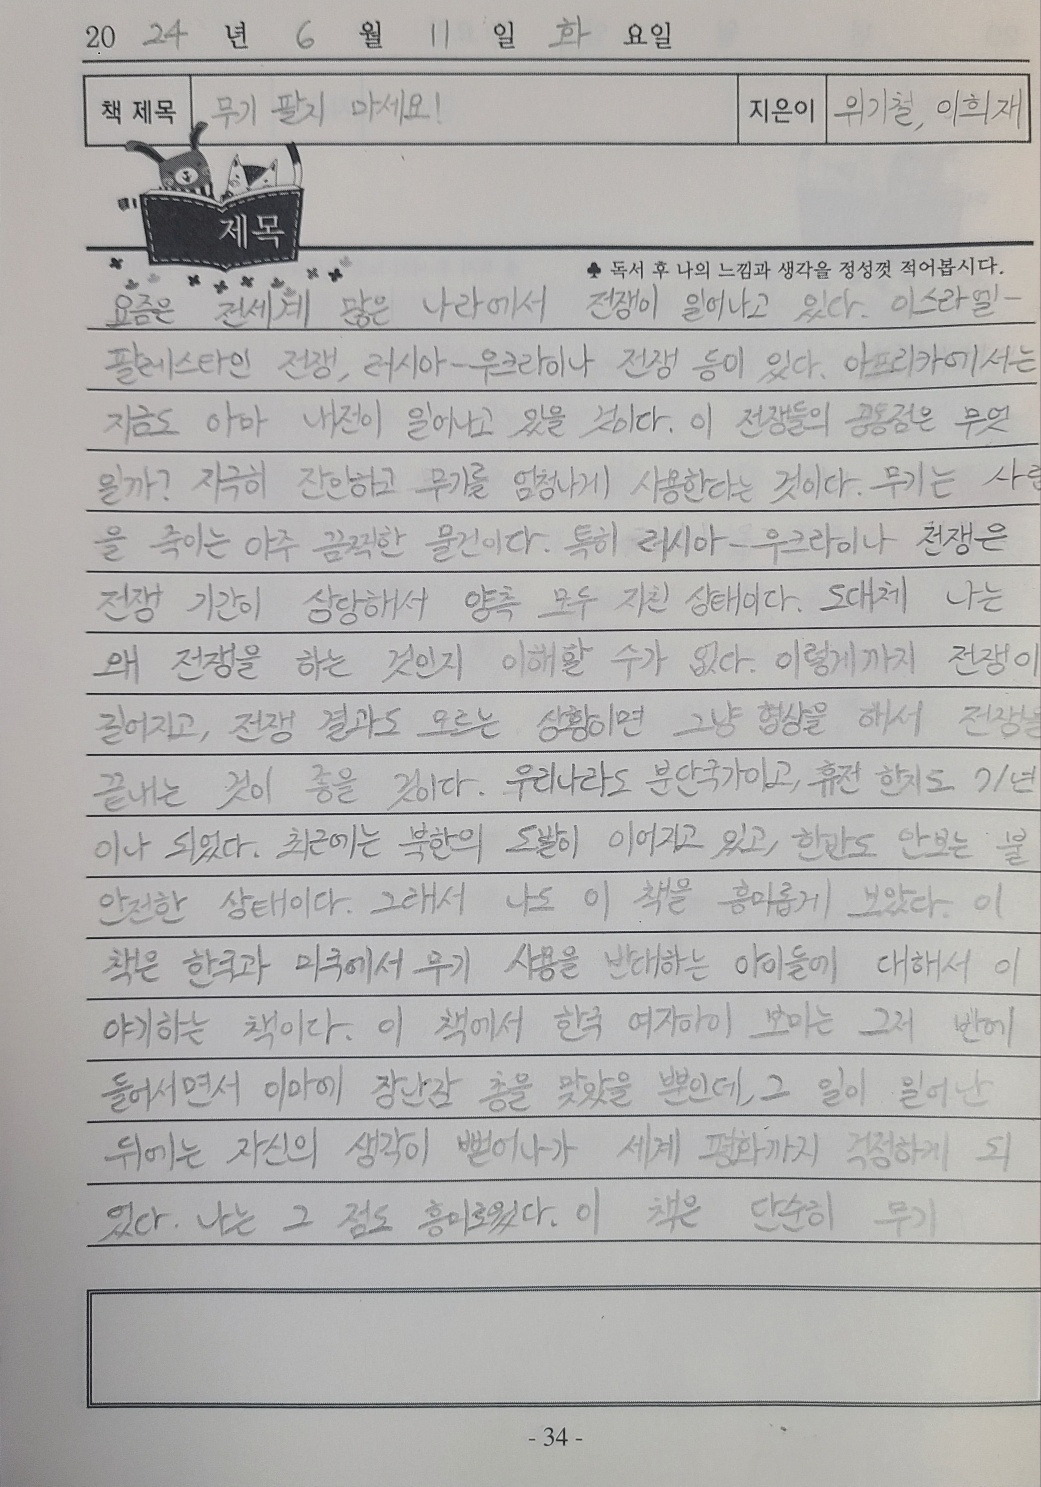 2024년 6월 11일 화요일
책 제목 무기 팔지 마세요! 지은이 위기철, 이희재
제목
♣ 독서 후 나의 느낌과 생각을 정성껏 적어봅시다.
요즘은 전세계 많은 나라에서 전쟁이 일어나고 있다. 이스라엘-
팔레스타인 전쟁, 러시아-우크라이나 전쟁 등이 있다. 아프리카에서는
지금도 아마 내전이 일어나고 있을 것이다. 이 전쟁들의 공통점은 무엇
일까? 지극히 잔인하고 무기를 엄청나게 사용한다는 것이다. 무기는 사람
을 죽이는 아주 끔찍한 물건이다. 특히 러시아-우크라이나 전쟁은
전쟁 기간이 상당해서 양측 모두 지친 상태이다. 도대체 나는
왜 전쟁을 하는 것인지 이해할 수가 없다. 이렇게까지 전쟁이
길어지고, 전쟁 결과도 모르는 상황이면 그냥 협상을 해서 전쟁을
끝내는 것이 좋을 것이다. 우리나라도 분단국가이고, 휴전 한지도 71년
이나 되었다. 최근에는 북한의 도발이 이어지고 있고, 한반도 안보는 불
안전한 상태이다. 그래서 나도 이 책을 흥미롭게 보았다. 이
책은 한국과 미국에서 무기 사용을 반대하는 아이들에 대해서 이
야기하는 책이다. 이 책에서 한국 여자아이 보미는 그저 반에
들어서면서 이마에 장난감 총을 맞았을 뿐인데, 그 일이 일어난
뒤에는 자신의 생각이 뻗어나가 세계 평화까지 걱정하게 되
었다. 나는 그 점도 흥미로웠다. 이 책은 단순히 무기
- 34 -